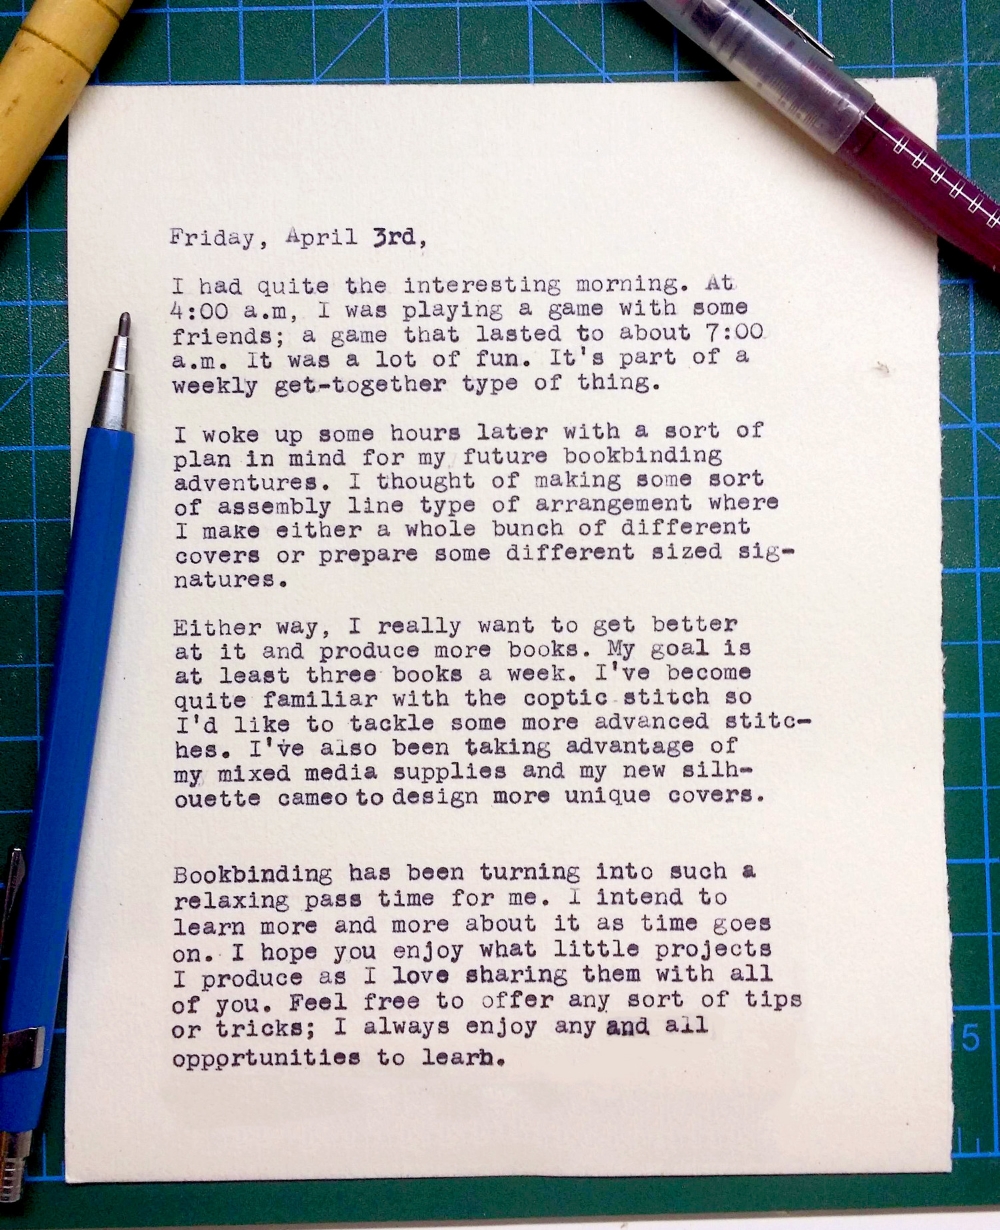 Friday, April 3rd,
I had quite the interesting morning. At
4:00 a.m, I was playing a game with some
friends; a game that lasted to about 7:00
a.m. It was a lot of fun. It's part of a
weekly get-together type of thing.
I woke up some hours later with a sort of
plan in mind for my future bookbinding
adventures. I thought of making some sort
of assembly line type of arrangement where
I make either a whole bunch of different
covers or prepare some different sized sig-
natures.
Either way, I really want to get better
at it and produce more books. My goal is
at least three books a week. I've become
quite familiar with the coptic stitch so
I'd like to tackle some more advanced stitc-
hes. I've also been taking advantage of
my mixed media supplies and my new silh-
ouette cameo to design more unique covers.
Bookbinding has been turning into such a
relaxing pass time for me. I intend to
learn more and more about it as time goes
on. I hope you enjoy what little projects
I produce as I love sharing them with all
of you. Feel free to offer any sort of tips
or tricks; I always enjoy any and all
opportunities to learn.
15